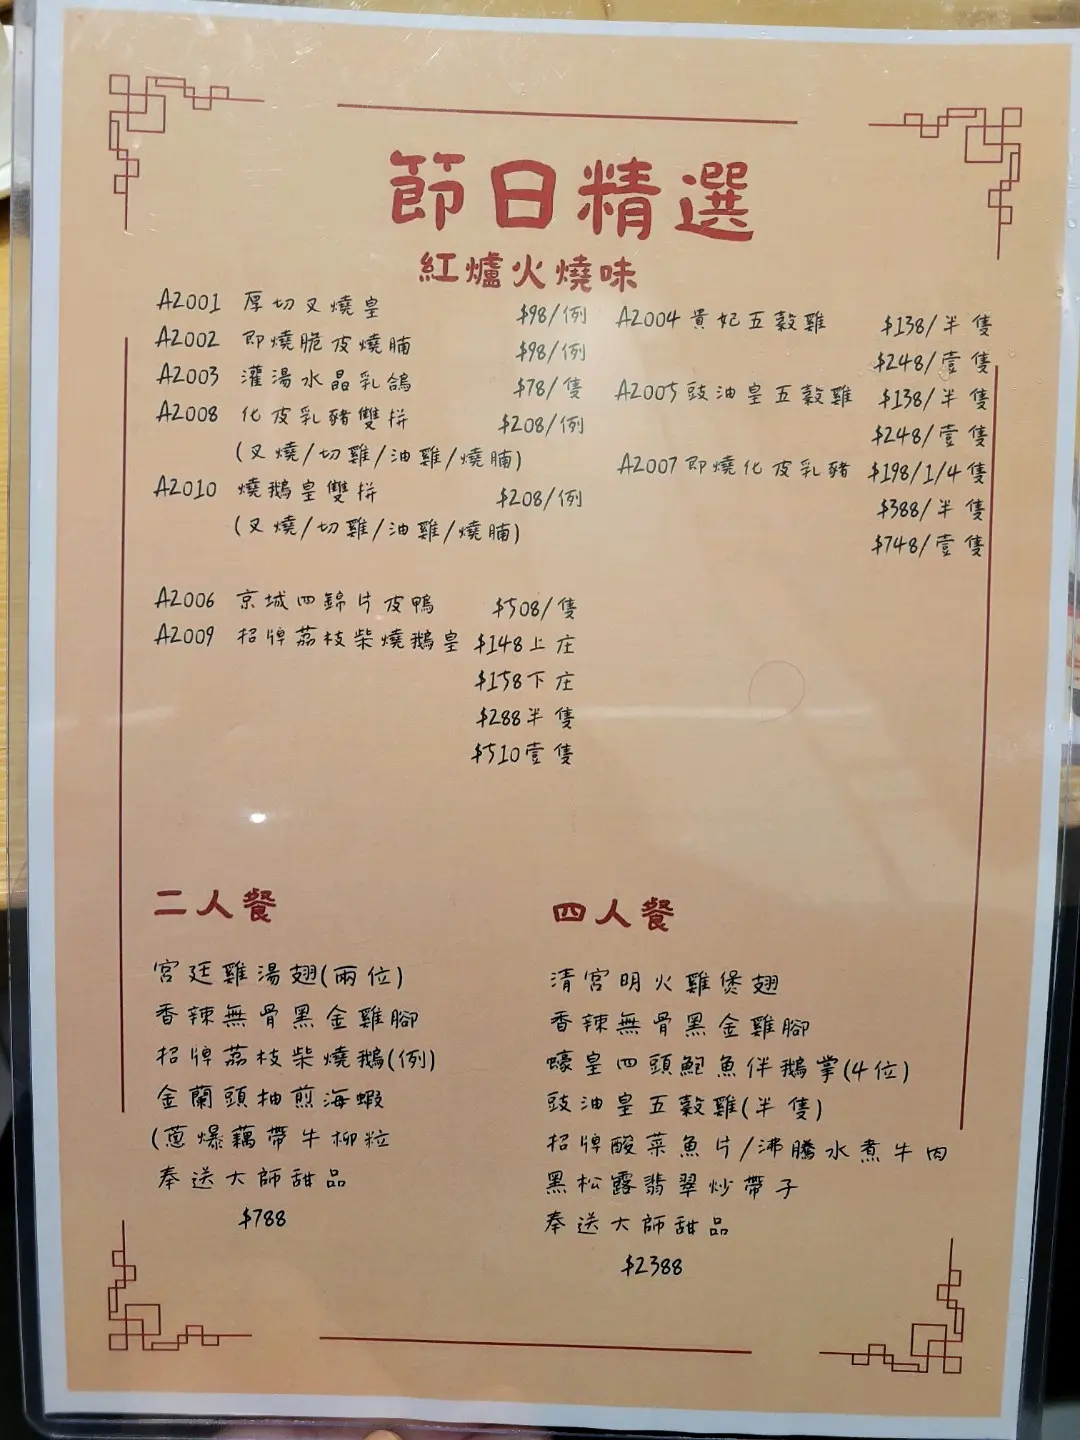 節日精選
紅爐火燒味
A2001 厚切叉燒皇 $98/例
A2002 即燒脆皮燒腩 $98/例
A2003 灌湯水晶乳鴿 $78/隻
A2008 化皮乳豬雙拼 $208/例
(叉燒/切雞/油雞/燒腩)
A2010 燒鵝皇雙拼 $208/例
(叉燒/切雞/油雞/燒腩)
A2004 貴妃五穀雞 $138/半隻
$248/壹隻
A2005 豉油皇五穀雞 $138/半隻
$248/壹隻
A2007 即燒化皮乳豬 $198/1/4隻
$388/半隻
$748/壹隻
A2006 京城四錦片皮鴨 $508/隻
A2009 招牌荔枝柴燒鵝皇 $148上庄
$158下庄
$288半隻
$510壹隻
二人餐
宮廷雞湯翅(兩位)
香辣無骨黑金雞腳
招牌荔枝柴燒鵝(例)
金蘭頭抽煎海蝦
(蔥爆藕帶牛柳粒
奉送大師甜品
$788
四人餐
清宮明火雞煲翅
香辣無骨黑金雞腳
蠔皇四頭鮑魚伴鵝掌(4位)
豉油皇五穀雞(半隻)
招牌酸菜魚片/沸騰水煮牛肉
黑松露翡翠炒帶子
奉送大師甜品
$2388